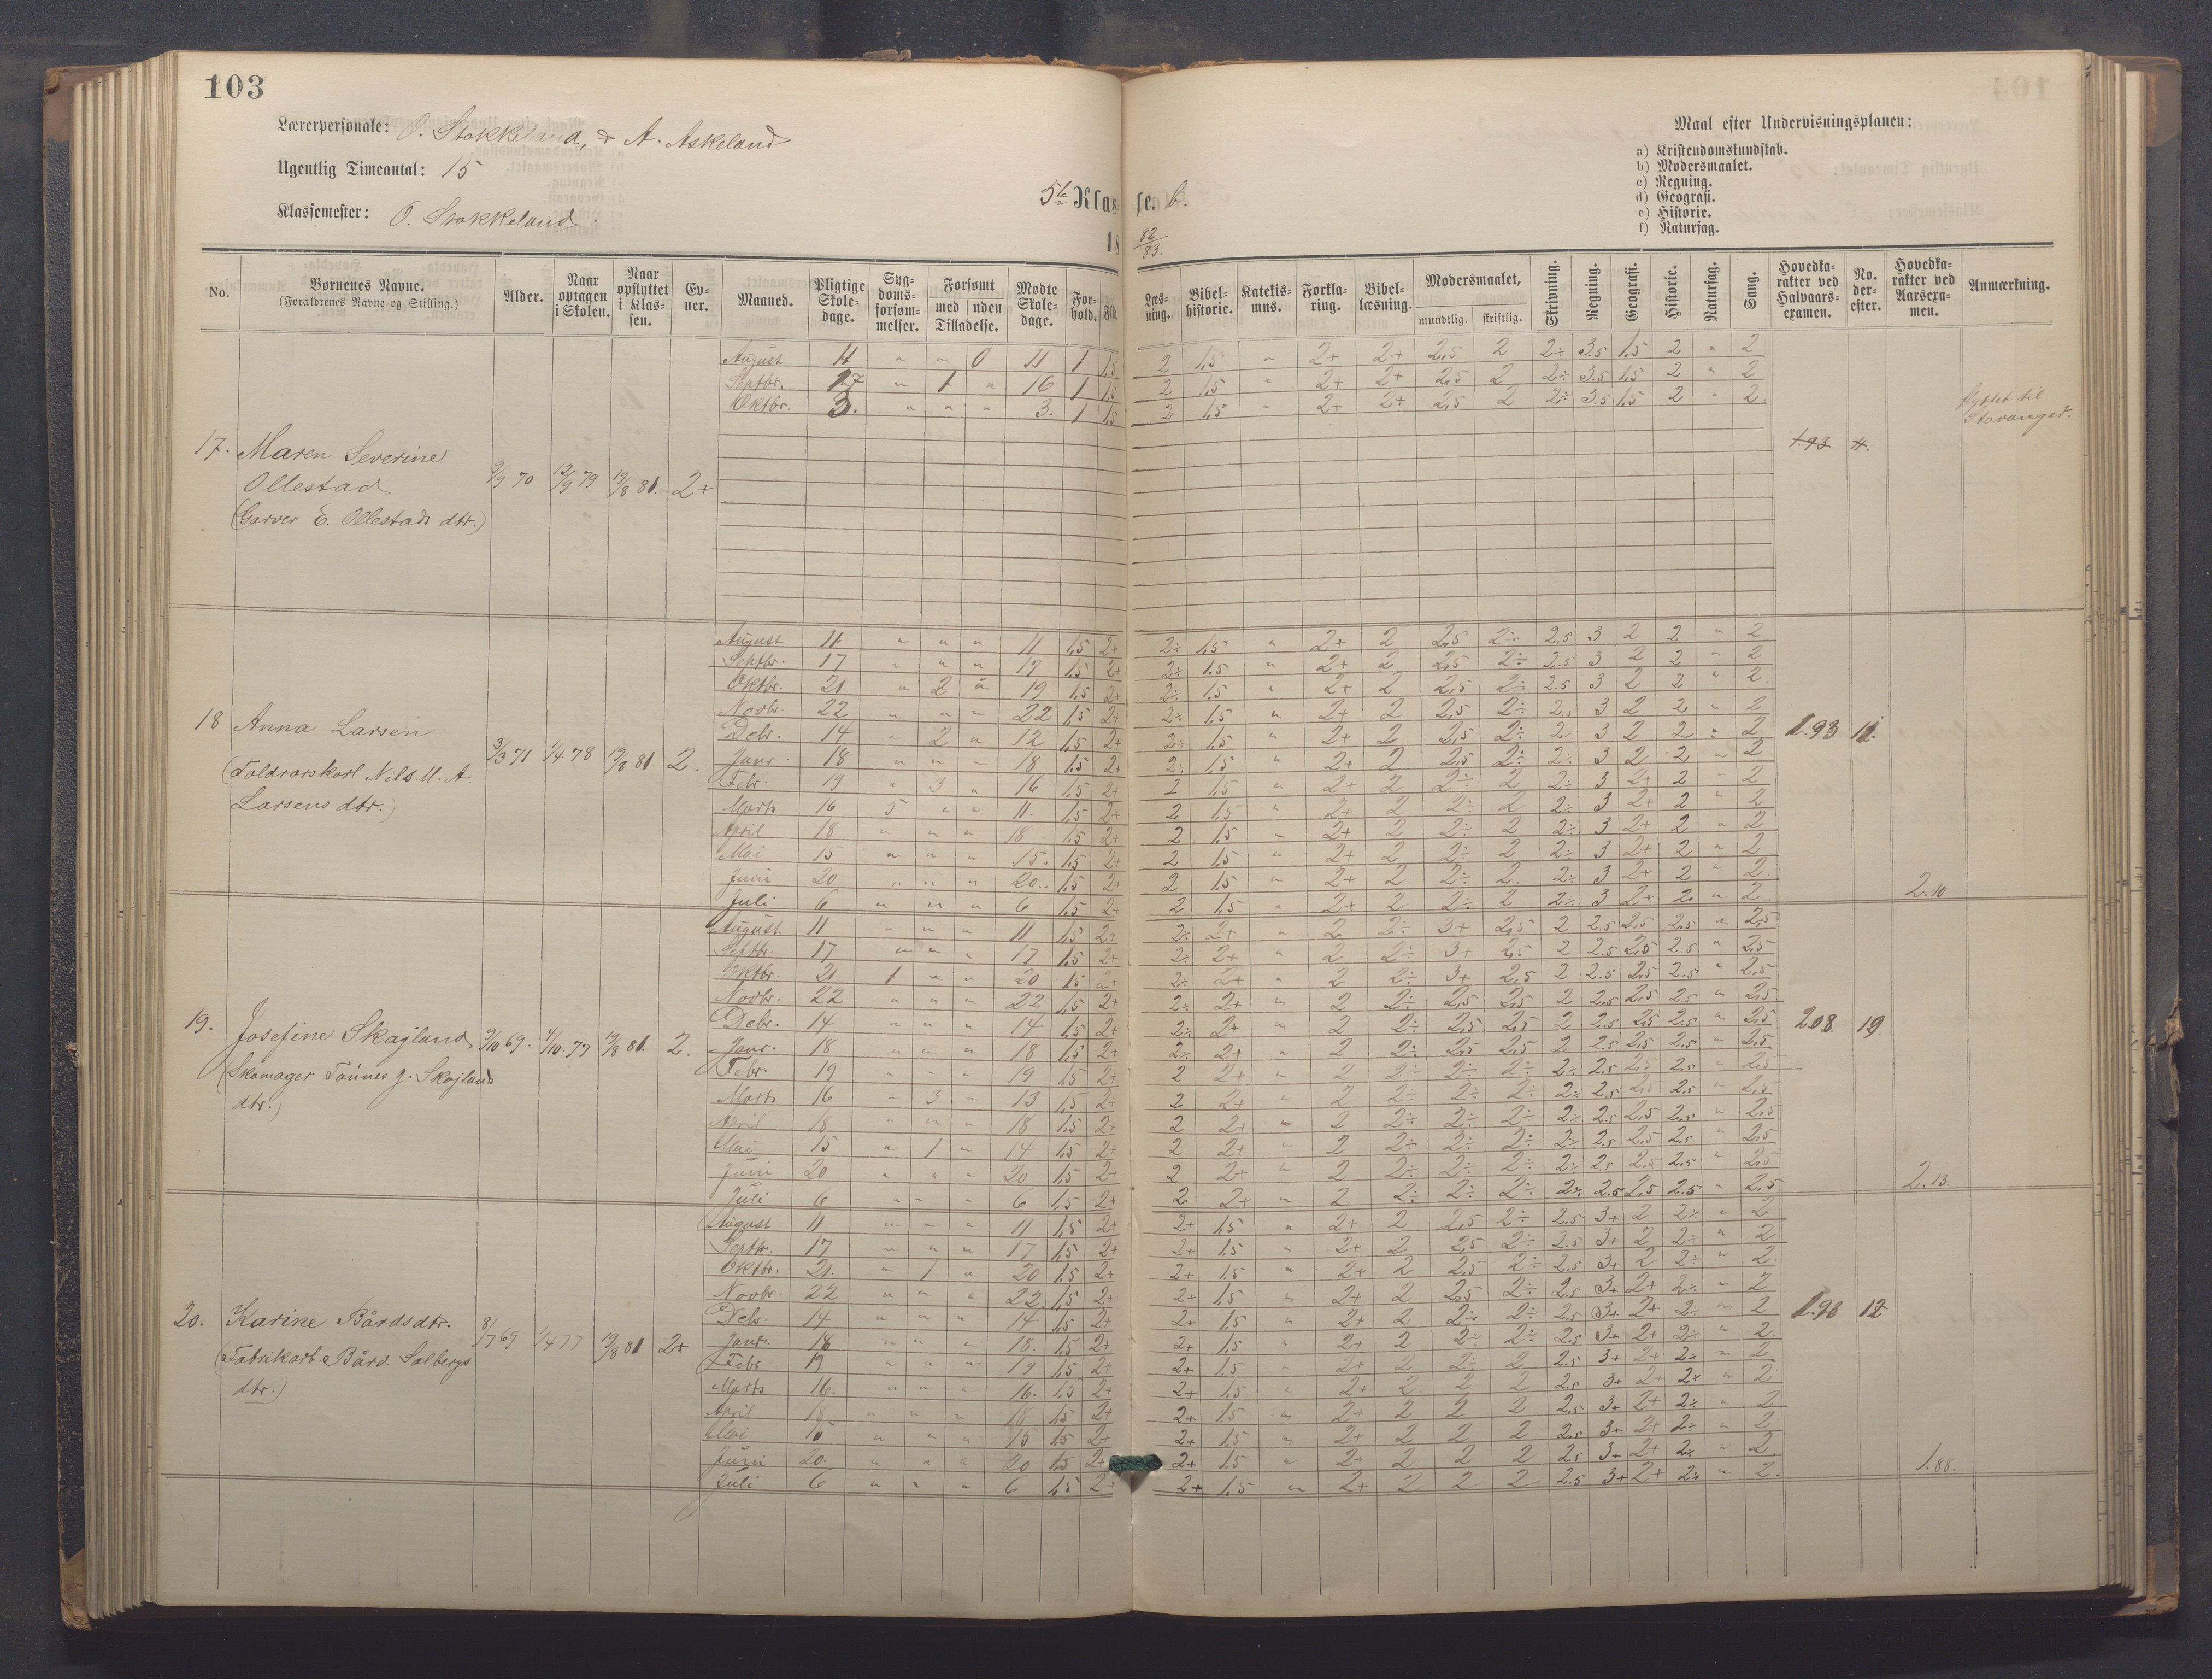 103
Lærerpersonale: O. Stokkeland, & A. Askeland
Ugentlig Timeantal: 15
Klassemester: O. Stokkeland.
5te Klasse. b.
18 82/83.
Maal efter Undervisningsplanen:
a) Kristendomskundskab.
b) Modersmaalet.
c) Regning.
d) Geografi.
e) Historie.
f) Naturfag.
No. Børnenes Navne. (Forældrenes Navne og Stilling.) Alder. Naar optagen i Skolen. Naar opflyttet i Klassen. Evner. Maaned. Pligtige Skoledage. Sygdomsforsømmelser. Forsømt med uden Tilladelse. Mødte Skoledage. Forhold. Flid. Læsning. Bibelhistorie. Katekismus. Forklaring. Bibellæsning. Modersmaalet, mundtlig. skriftlig. Skrivning. Regning. Geografi. Historie. Naturfag. Sang. Hovedkarakter ved Halvaarsexamen. No. derefter. Hovedkarakter ved Aarsexamen. Anmærkning.
August 11 " " 0 11 1 1,5 2 1,5 " 2+ 2+ 2,5 2 2÷ 3.5 1,5 2 " 2
Septbr. 17 " 1 " 16 1 1,5 2 1,5 " 2+ 2+ 2,5 2 2÷ 3.5 1,5 2 " 2
Oktbr. 3. " " " 3. 1 1,5 2 1,5 " 2+ 2+ 2,5 2 2÷ 3.5 1,5 2 " 2.
flyttet til
Stavanger.
17. Maren Severine
Ollestad
(Garver E. Ollestads dtr.)
9/9 70 12/9 79 19/8 81. 2+
1.93 11.
August 11 " " " 11 1,5 2+ 2÷ 1,5 " 2+ 2 2,5 2÷ 2,5 3 2 2 " 2
Septbr. 17 " " " 17 1,5 2+ 2÷ 1.5 " 2+ 2 2,5 2÷ 2.5 3 2 2 " 2
Oktbr. 21 " 2 " 19 1,5 2+ 2÷ 1.5 " 2+ 2 2,5 2÷ 2.5 3 2 2 " 2.
Novbr. 22 " " " 22 1,5 2+ 2÷ 1,5 " 2+ 2 2,5 2÷ 2,5 3 2 2 " 2
Debr. 14 " 2 " 12 1,5 2+ 2÷ 1,5 " 2+ 2 2,5 2÷ 2÷ 3 2 2 " 2
Janr. 18 " " " 18 1,5 2+ 2÷ 1,5 " 2+ 2 2,5 2÷ 2÷ 3 2 2 " 2
Febr. 19 " 3 " 16 1,5 2+ 2 1,5 " 2+ 2 2÷ 2 2÷ 3 2+ 2 " 2
Marts 16 5 " " 11. 1,5 2+ 2 1,5 " 2+ 2 2÷ 2 2÷ 3 2+ 2 " 2
April 18 " " " 18 1,5 2+ 2 1,5 " 2+ 2 2÷ 2 2÷ 3 2+ 2 " 2
Mai 15 " " " 15. 1,5 2+ 2 1,5 " 2+ 2 2÷ 2 2÷ 3 2+ 2 " 2
Juni 20 " " " 20. 1,5 2+ 2 1,5 " 2+ 2 2÷ 2 2÷ 3 2+ 2 " 2.
Juli 6 " " " 6 1,5 2+ 2 1,5 " 2+ 2 2÷ 2 2÷ 3 2+ 2 " 2
18 Anna Larsen
(Toldrorskarl Nils M. A.
Larsens dtr.)
3/3 71 1/4 78 19/8 81 2.
1.93 11.
2.10
August 11 " " " 11 1,5 2+ 2÷ 2+ " 2 2÷ 3+ 2,5 2 2.5 2,5 2,5 " 2,5
Septbr. 17 " " " 17 1,5 2+ 2÷ 2+ " 2 2÷ 3+ 2,5 2 2.5 2,5 2.5 " 2,5
Oktbr. 21 1 " " 20 1,5 2+ 2÷ 2+ " 2 2÷ 3+ 2,5 2 2.5 2,5 2.5 " 2,5
Novbr. 22 " " " 22 1,5 2+ 2÷ 2+ " 2 2÷ 2,5 2,5 2 2,5 2,5 2.5 " 2,5
Debr. 14 " " " 14 1,5 2+ 2÷ 2+ " 2 2÷ 2,5 2,5 2 2.5 2,5 2,5 " 2,5
Janr. 18 " " " 18 1,5 2+ 2÷ 2+ " 2 2÷ 2,5 2,5 2 2.5 2,5 2.5 " 2,5
Febr. 19 " " " 19 1,5 2+ 2 2+ " 2 2÷ 2÷ 2÷ 2÷ 2.5 2,5 2,5 " 2,5
Marts 16 " 3 " 13 1,5 2+ 2 2+ " 2 2÷ 2÷ 2÷ 2÷ 2.5 2,5 2,5 " 2,5
April 18 " " " 18 1,5 2+ 2 2+ " 2 2÷ 2÷ 2÷ 2÷ 2.5 2,5 2,5 " 2,5
Mai 15 " 1 " 14 1,5 2+ 2 2+ " 2 2÷ 2÷ 2÷ 2÷ 2.5 2,5 2.5 " 2,5
Juni 20 " " " 20 1,5 2+ 2 2+ " 2 2÷ 2÷ 2÷ 2÷ 2.5 2,5 2,5 " 2,5
Juli 6 " " " 6 1,5 2+ 2 2+ " 2 2÷ 2÷ 2÷ 2÷ 2.5 2,5 2.5 " 2,5
19. Josefine Skajland
(Skomager Tønnes J. Skajland
dtr.)
9/10 69. 4/10 77 19/8 81. 2.
2.08 19.
2.13.
August 11 " " " 11 1,5 2+ 2+ 1,5 " 2+ 2 2,5 2÷ 2.5 3+ 2 2÷ " 2
Septbr. 17 " " " 17 1,5 2+ 2+ 1.5 " 2+ 2 2,5 2÷ 2.5 3+ 2 2÷ " 2
Oktbr. 21. " 1 " 20 1,5 2+ 2+ 1.5 " 2+ 2 2,5 2÷ 2.5 3+ 2 2÷ " 2.
Novbr. 22 " " " 22. 1,5 2+ 2+ 1,5 " 2+ 2 2,5 2÷ 2,5 3+ 2+ 2÷ " 2
Debr. 14 " " " 14 1,5 2+ 2+ 1,5 " 2+ 2 2÷ 2÷ 2.5 3+ 2+ 2÷ " 2
Janr. 18 " " " 18. 1,5 2+ 2+ 1,5 " 2+ 2 2÷ 2÷ 2.5 3+ 2+ 2÷ " 2.
Febr. 19 " " " 19 1,5 2+ 2+ 1,5 " 2+ 2 2÷ 2 2.5 3+ 2+ 2÷ " 2
Marts 16. " " " 16. 1,5 2+ 2+ 1,5 " 2+ 2 2 2 2.5 3+ 2+ 2÷ " 2
April 18 " " " 18 1,5 2+ 2+ 1.5 " 2+ 2 2 2 2,5 3+ 2+ 2÷ " 2
Mai 15 " " " 15 1,5 2+ 2+ 1,5 " 2+ 2 2 2 2,5 3+ 2+ 2÷ " 2
Juni 20. " " " 20 1,5 2+ 2+ 1,5 " 2+ 2 2 2 2,5 3+ 2+ 2÷ " 2
Juli 6 " " " 6 1,5 2+ 2+ 1,5 " 2+ 2 2 2 2.5 3+ 2+ 2÷ " 2.
20. Karine Bårdsdtr.
(Fabrikarb. Bård Solbergs
dtr.)
8/7 69 1/4 77 19/8 81 2+
1.98 12
1.88.